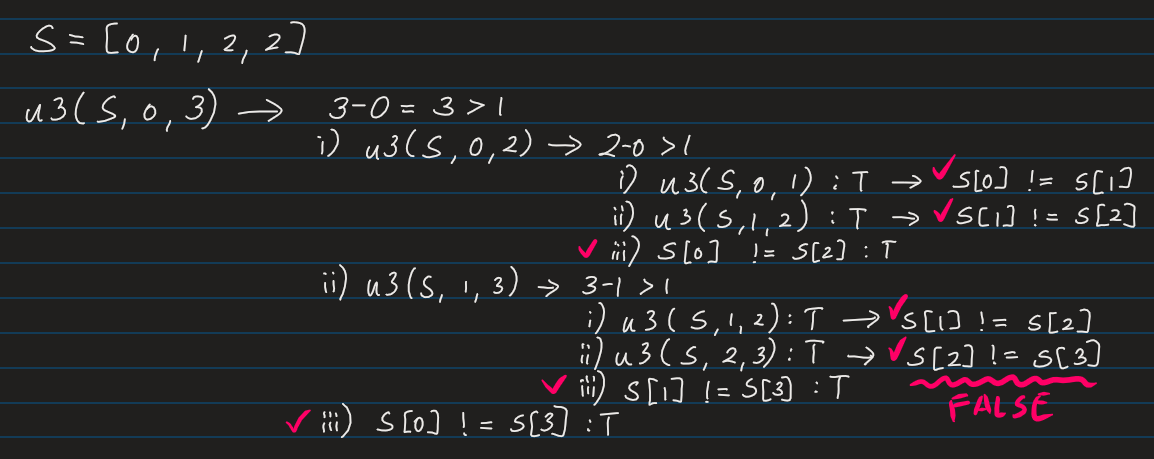 S = [0, 1, 2, 2]
u3(S, 0, 3) → 3-0 = 3 > 1
i) u3(S, 0, 2) → 2-0 > 1
i) u3(S, 0, 1) : T → ✓ S[0] != S[1]
ii) u3(S, 1, 2) : T → ✓ S[1] != S[2]
✓ iii) S[0] != S[2] : T
ii) u3(S, 1, 3) → 3-1 > 1
i) u3(S, 1, 2) : T → ✓ S[1] != S[2]
ii) u3(S, 2, 3) : T → ✓ S[2] != S[3]
✓ iii) S[1] != S[3] : T
FALSE
✓ iii) S[0] != S[3] : T